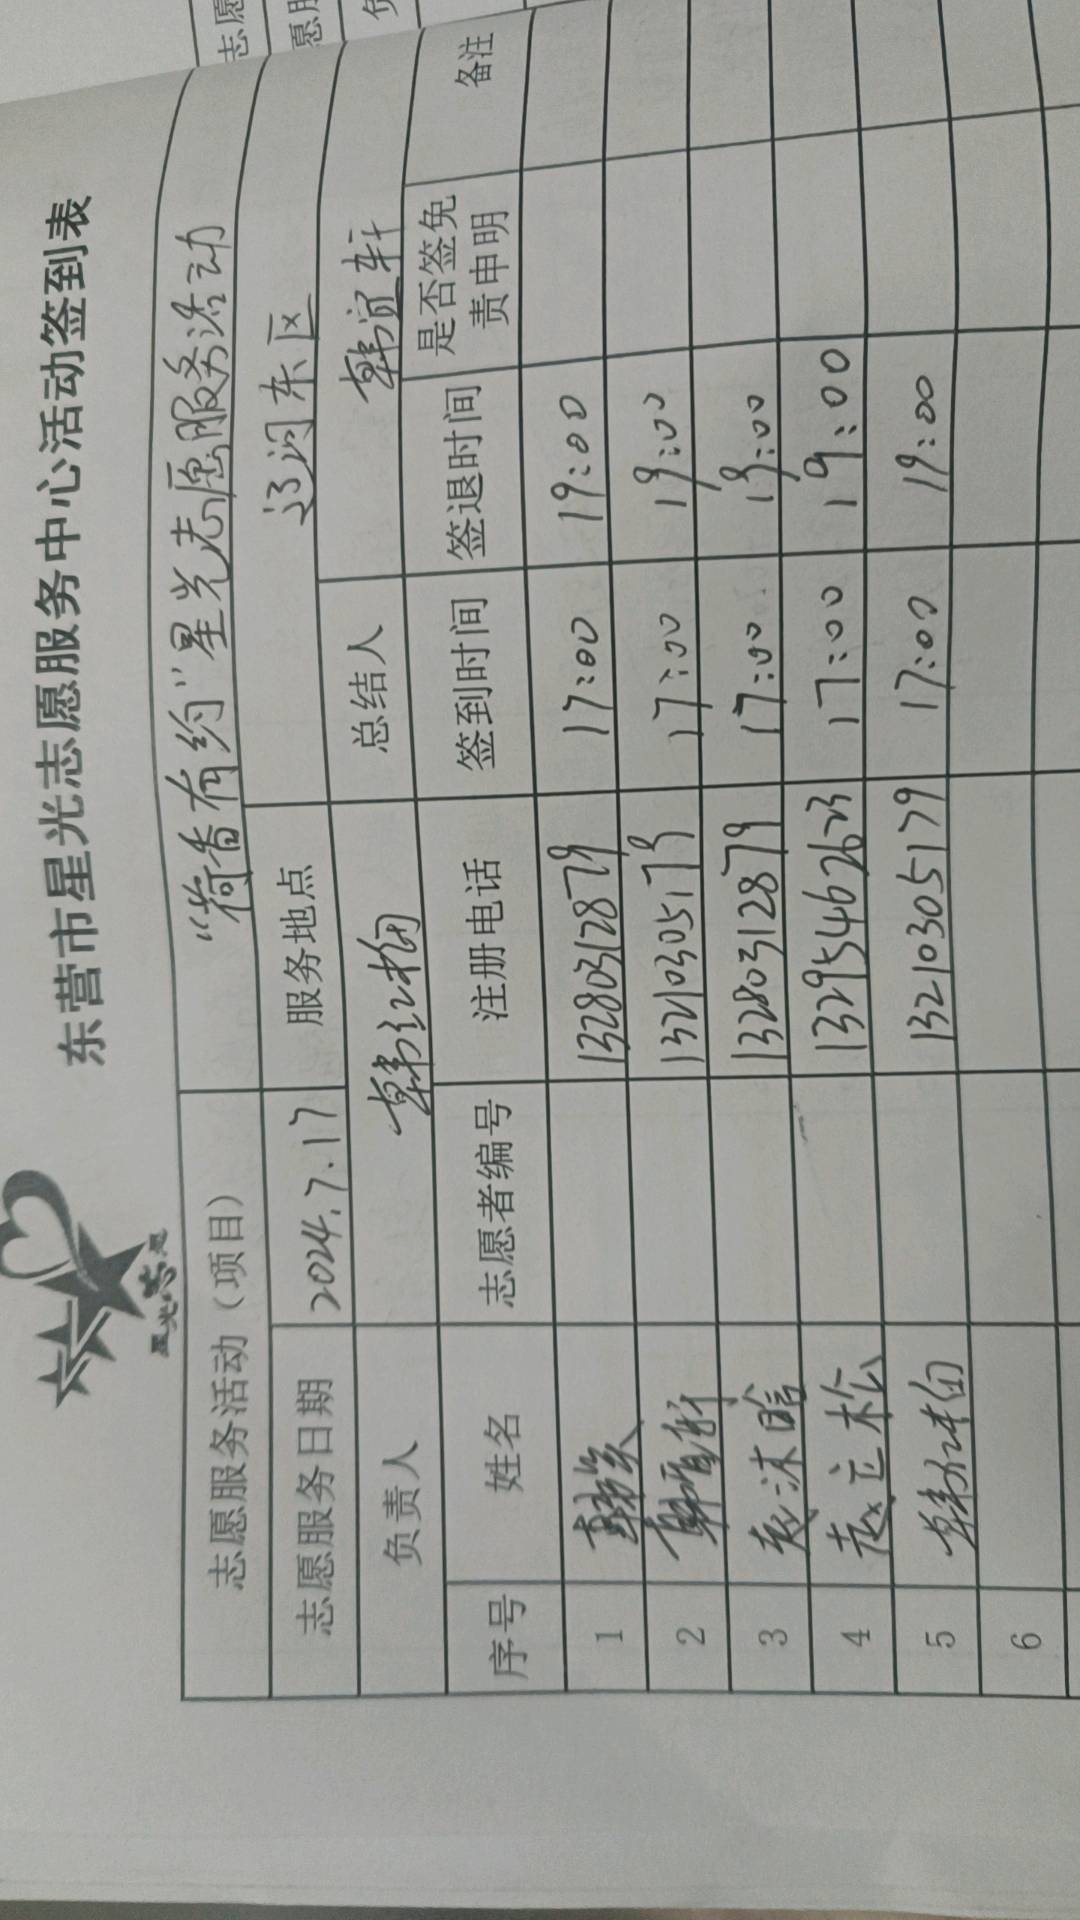 志愿
愿服
负
星光志愿
东营市星光志愿服务中心活动签到表
志愿服务活动（项目） “荷香有约”星光志愿服务活动
志愿服务日期 2024.7.17 服务地点 辽河东区
负责人 韩红梅 总结人 韩宜轩
序号 姓名 志愿者编号 注册电话 签到时间 签退时间 是否签免责申明 备注
1 13280312879 17:00 19:00
2 13210305179 17:00 19:00
3 赵沫晗 13280312879 17:00 19:00
4 赵立松 13295462623 17:00 19:00
5 13210305179 17:00 19:00
6